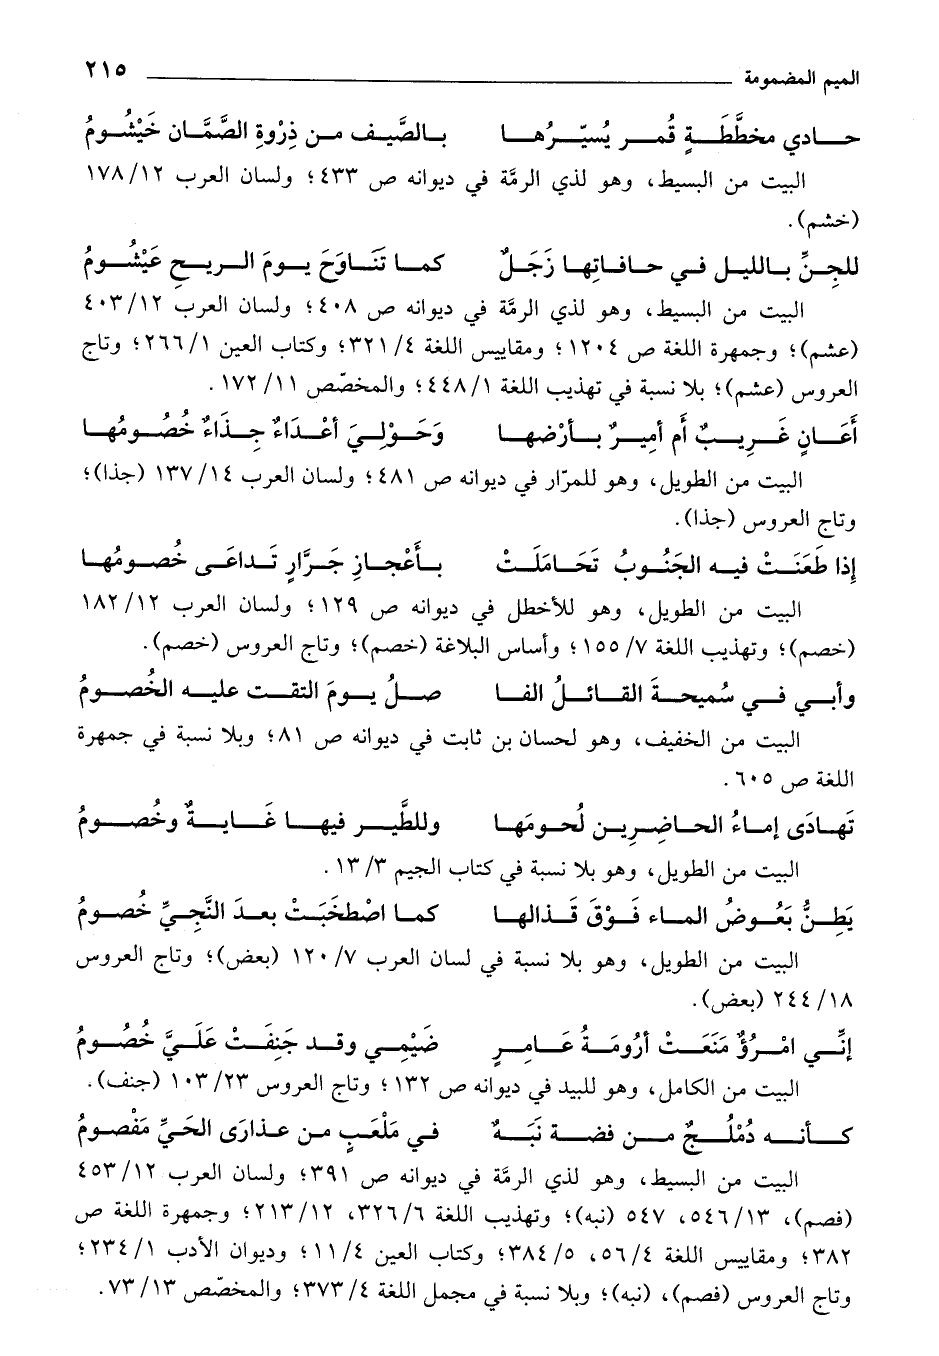 الميم المضمومة ٢١٥
حـادي مخطَّطَـةٍ قُمـر يُسيّـرُهـا بـالصَّيـف مـن ذِرْوةِ الصَّمَّـان خَيْشُـومُ
البيت من البسيط، وهو لذي الرمَّة في ديوانه ص ٤٣٣؛ ولسان العرب ١٢/ ١٧٨
(خشم).
للجـنِّ بـالليـل فـي حـافـاتِهـا زَجَـلٌ كمـا تَنَـاوَحَ يـومَ الـريـحِ عَيْشُـومُ
البيت من البسيط، وهو لذي الرمَّة في ديوانه ص ٤٠٨؛ ولسان العرب ١٢/ ٤٠٣
(عشم)؛ وجمهرة اللغة ص ١٢٠٤؛ ومقاييس اللغة ٤/ ٣٢١؛ وكتاب العين ١/ ٢٦٦؛ وتاج
العروس (عشم)؛ بلا نسبة في تهذيب اللغة ١/ ٤٤٨؛ والمخصّص ١١/ ١٧٢.
أَعَـانٍ غَـرِيـبٌ أم أميـرٌ بـأرْضهـا وَحَـوْلِـيَ أعْـدَاءٌ جِـذَاءٌ خُصُـومُهـا
البيت من الطويل، وهو للمرّار في ديوانه ص ٤٨١؛ ولسان العرب ١٤/ ١٣٧ (جذا)؛
وتاج العروس (جذا).
إذا طَعَنَـتْ فيـه الجَنُـوبُ تَحَـامَلَـتْ بـأَعْجـازِ جَـرَّارٍ تَـداعَـى خُصُـومُهـا
البيت من الطويل، وهو للأخطل في ديوانه ص ١٢٩؛ ولسان العرب ١٢/ ١٨٢
(خصم)؛ وتهذيب اللغة ٧/ ١٥٥؛ وأساس البلاغة (خصم)؛ وتاج العروس (خصم).
وأبـي فـي سُميحـةَ القـائـلُ الفـا صـلُ يـومَ التقـت عليـه الخُصـومُ
البيت من الخفيف، وهو لحسان بن ثابت في ديوانه ص ٨١؛ وبلا نسبة في جمهرة
اللغة ص ٦٠٥.
تَهـادَى إمـاءُ الحـاضِـرِيـن لُحـومَهـا وللطَّيـر فيهـا غَـايـةٌ وخُصـومُ
البيت من الطويل، وهو بلا نسبة في كتاب الجيم ٣/ ١٣.
يَطِـنُّ بَعُـوضُ المـاء فَـوْقَ قَـذالهـا كمـا اصْطَخَبَـتْ بعـدَ النَّجِـيِّ خُصـومُ
البيت من الطويل، وهو بلا نسبة في لسان العرب ٧/ ١٢٠ (بعض)؛ وتاج العروس
١٨/ ٢٤٤ (بعض).
إنِّـي امْـرُؤٌ مَنَعَـتْ أرُومَـةُ عَـامِـرٍ ضَيْمِـي وقـد جَنِفَـتْ عَلَـيَّ خُصُـومُ
البيت من الكامل، وهو للبيد في ديوانه ص ١٣٢؛ وتاج العروس ٢٣/ ١٠٣ (جنف).
كـأنـه دُمْلُـجٌ مـن فضـة نَبَـهٌ في مَلْعَبٍ مـن عـذارَى الحَيِّ مَفْصـومُ
البيت من البسيط، وهو لذي الرمَّة في ديوانه ص ٣٩١؛ ولسان العرب ١٢/ ٤٥٣
(فصم)، ١٣/ ٥٤٦، ٥٤٧ (نبه)؛ وتهذيب اللغة ٦/ ٣٢٦، ١٢/ ٢١٣؛ وجمهرة اللغة ص
٣٨٢؛ ومقاييس اللغة ٤/ ٥٦، ٥/ ٣٨٤؛ وكتاب العين ٤/ ١١؛ وديوان الأدب ١/ ٢٣٤؛
وتاج العروس (فصم)، (نبه)؛ وبلا نسبة في مجمل اللغة ٤/ ٣٧٣؛ والمخصّص ١٣/ ٧٣.